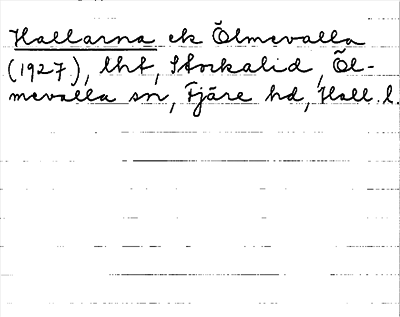 Hallarna ek Ölmevalla
(1927), lht, Stockalid, Öl-
mevalla sn, Fjäre hd, Hall. l.